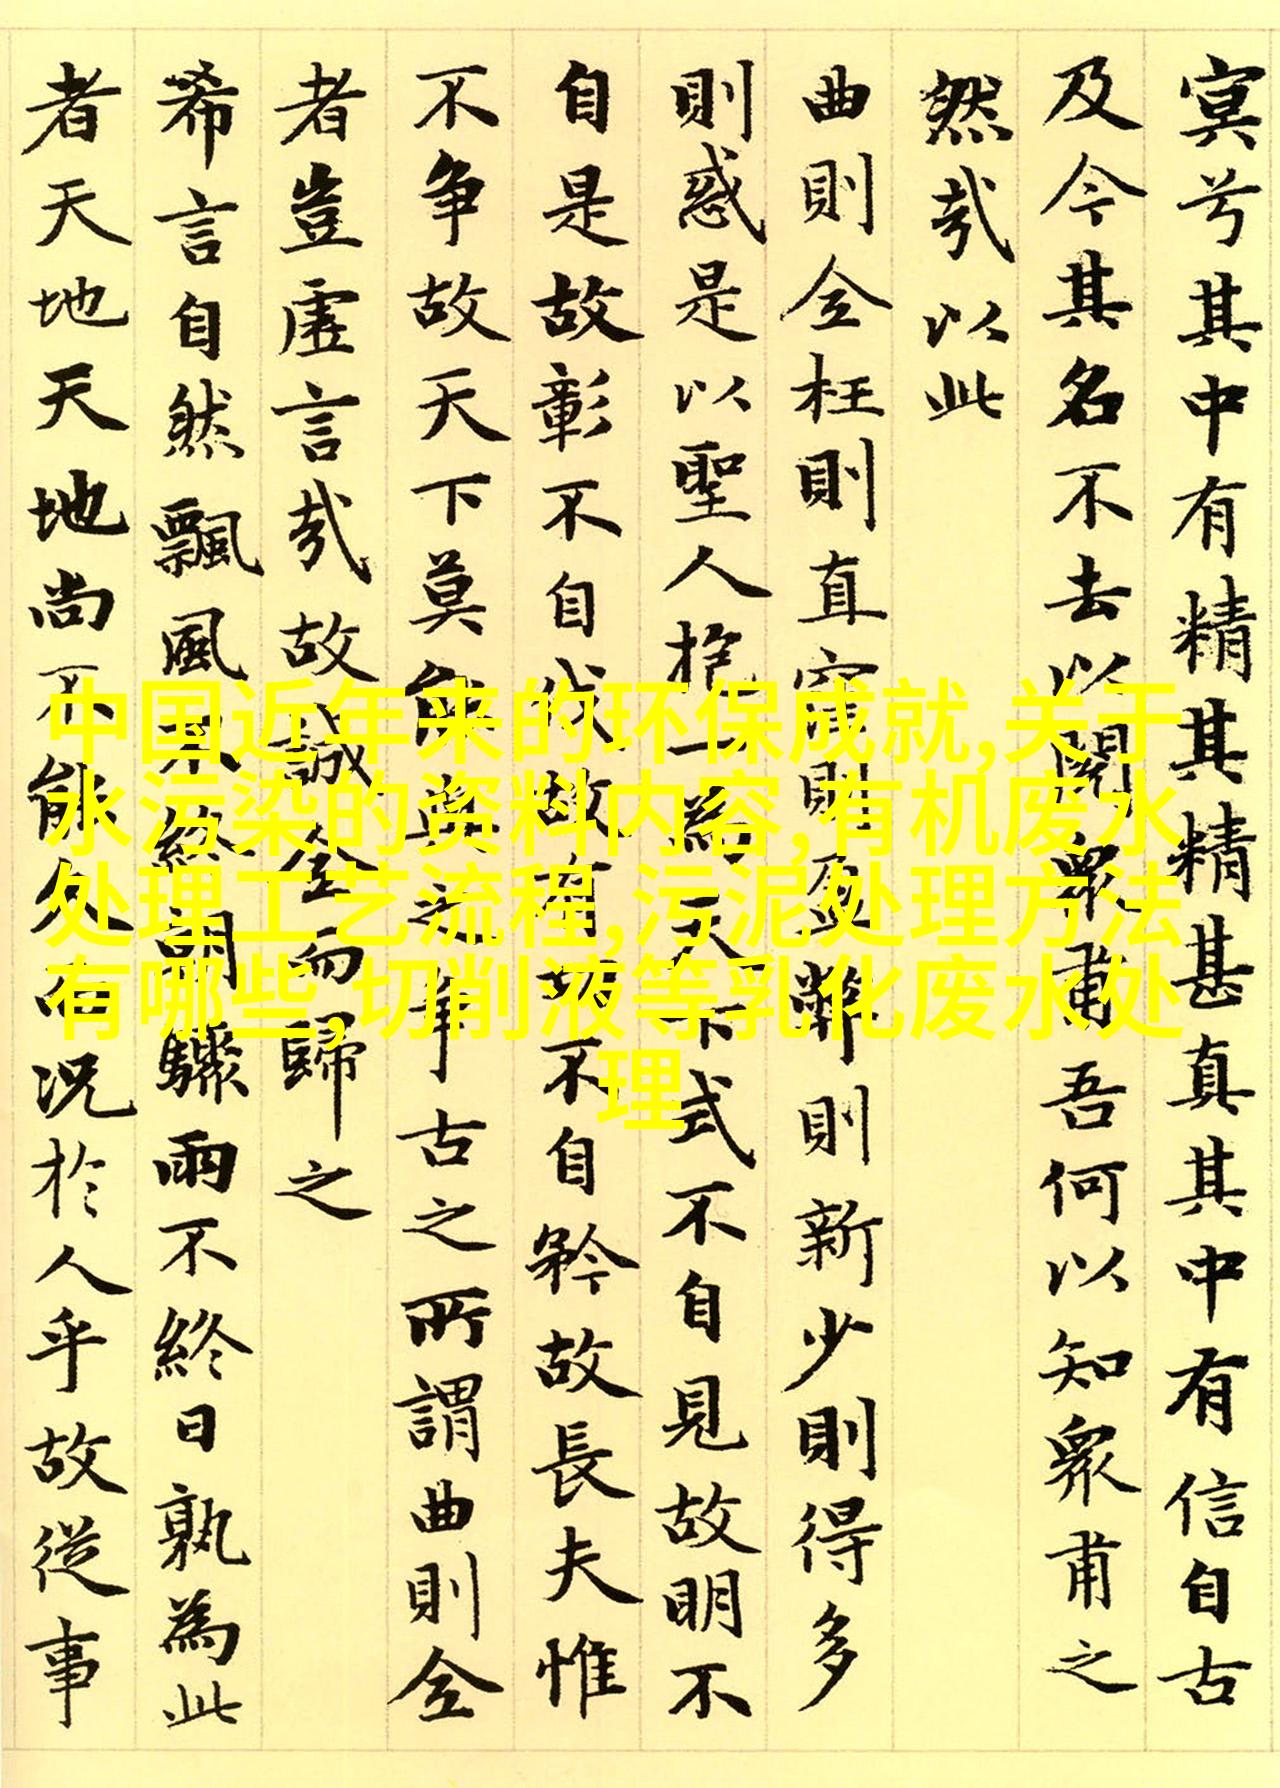 寘兮其中有精其精甚真其中有信自古
及今其名不去以閱眾甫吾何以知眾甫之
然哉以此
曲則全枉則直窪則盈弊則新少則得多
則惑是以聖人抱一為天下式不自見故明不
自是故彰不自伐故有功不自矜故長夫惟
不争故天下莫能與之争古之所謂曲則全
者豈虛言哉故誠全而歸之
希言自然飄風不終朝驟雨不終日孰為此
者天地天地尚不能久而况於人乎故從事
中国近年来的环保成就,关于
水污染的资料内容,有机废水
处理工艺流程,污泥处理方法
有哪些,切削液等乳化废水处
理